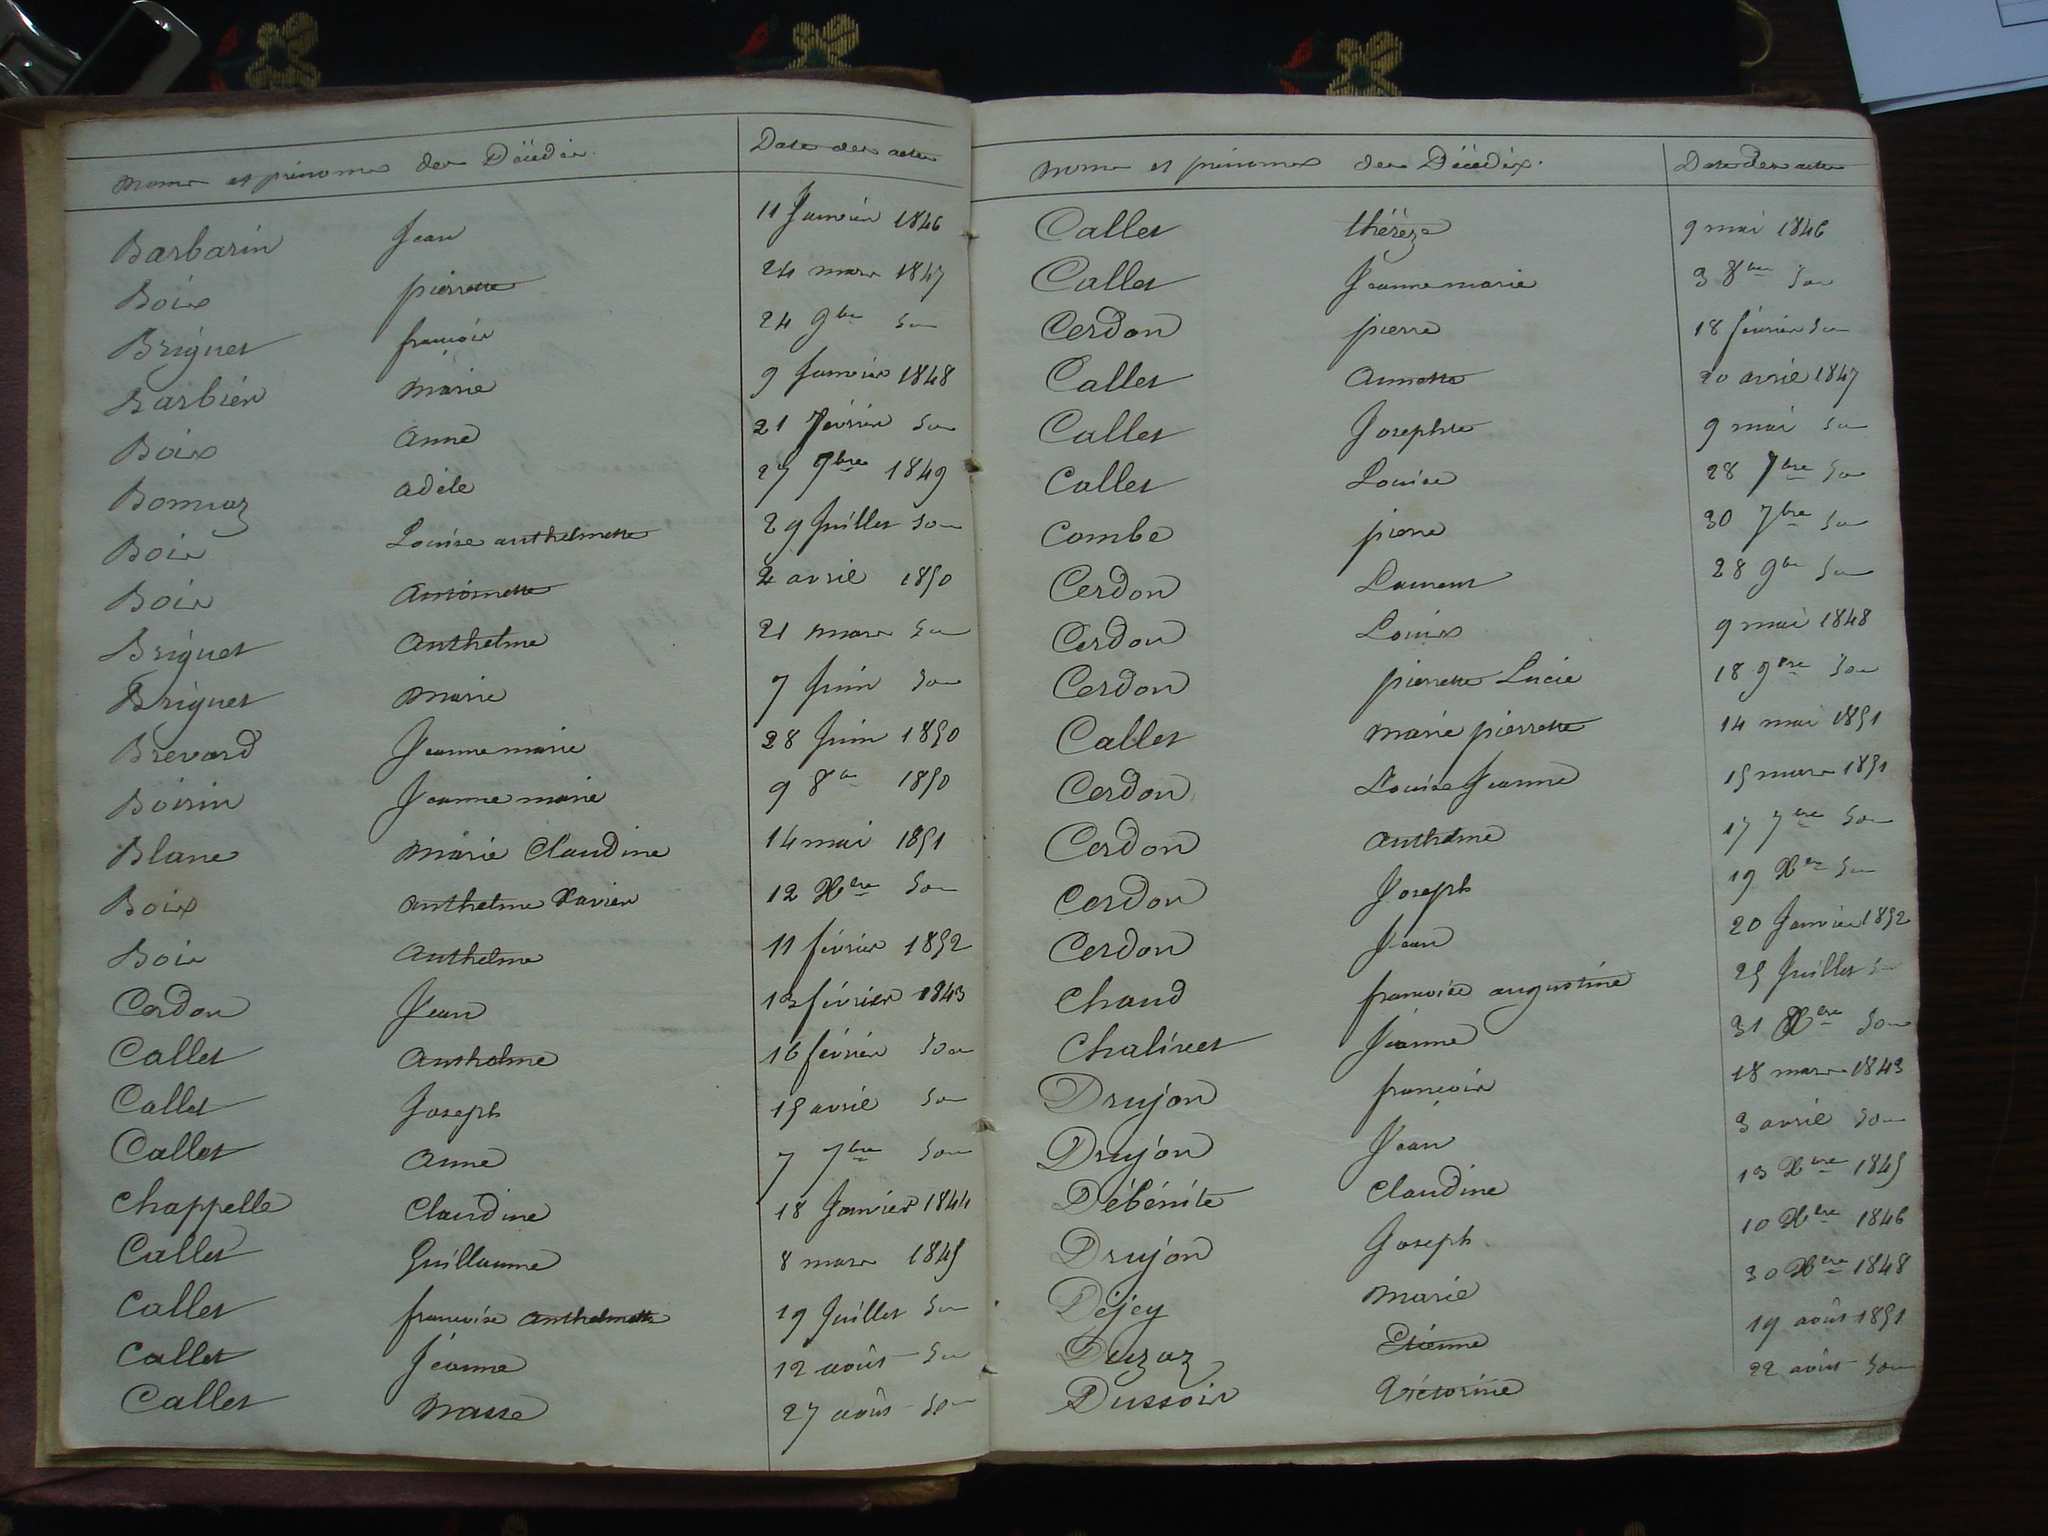 Noms et prénoms des Décédés. Date des actes
Barbarin Jean 11 Janvier 1846
Boix pierrette 24 mars 1847
Briguet françois 24 9bre d°
Barbier Marie 9 Janvier 1848
Boix Anne 21 février d°
Bonnaz adèle 27 9bre 1849
Boix Louise anthelmette 29 Juillet d°
Boix Antoinette 2 avril 1850
Briguet Anthelme 21 mars d°
Briguet Marie 7 Juin d°
Brevard Jeanne marie 28 Juin 1850
Boisin Jeanne marie 9 8bre 1850
Blanc Marie Claudine 14 mai 1851
Boix Anthelme Xavier 12 Xbre d°
Boix Anthelme 11 février 1852
Cerdon Jean 13 février 1843
Callet Anthelme 16 février d°
Callet Joseph 15 avril d°
Callet Anne 7 7bre d°
Chappelle Claudine 18 Janvier 1844
Callet Guillaume 8 mars 1845
Callet françoise Anthelmette 19 Juillet d°
Callet Jeanne 12 août d°
Callet 27 août d°
Noms et prénoms des Décédés. Date des actes
Callet thérèze 9 mai 1846
Callet Jeanne marie 3 8bre d°
Cerdon pierre 18 février d°
Callet Annette 20 avril 1847
Callet Josephte 9 mai d°
Callet Louise 28 7bre d°
Combe pierre 30 7bre d°
Cerdon Laurent 28 9bre d°
Cerdon Louis 9 mai 1848
Cerdon pierrette Lucie 18 9bre d°
Callet Marie pierrette 14 mai 1851
Cerdon Louise Jeanne 15 mars 1851
Cerdon Anthelme 17 7bre d°
Cerdon Joseph 19 Xbre d°
Cerdon Jean 20 Janvier 1852
Chaud françoise augustine 25 Juillet d°
Chalivet Jeanne 31 Xbre d°
Drujon françois 18 mars 1843
Drujon Jean 3 avril d°
Débénite Claudine 13 Xbre 1845
Drujon Joseph 10 Xbre 1846
Déjey Marie 30 Xbre 1848
Duzaz Etienne 19 août 1851
Dussoir Victorine 22 août d°